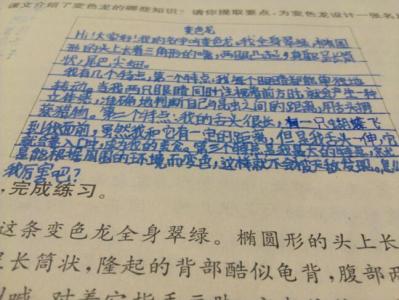 课文介绍了变色龙的哪些知识？请你提取要点，为变色龙设计一张名
变色龙
Hi！大家好！我的名字叫变色龙，我全身翠绿，椭圆
形的头上长着三角形的嘴，两眼凸起，身躯呈长筒
状，尾巴尖细。
我有几个特点，第一个特点，我每个眼睛都能单独地
转动。当我两只眼睛同时注视前方时，就会产生一种
立体感，准确地判断自己与昆虫之间的距离，用舌头捕
获猎物。第二个特点：我的舌头很长，有一只蝴蝶飞
到我面前，虽然我和它有一定的距离，但是我舌头一伸，它
就会
成为我的美食。第三个特点是我最大的特点，我
能根据周围的环境而变色，这样就不会被天敌发现。怎么
我厉害吧？
，完成练习。
这条变色龙全身翠绿。椭圆形的头上长
长筒状，隆起的背部酷似龟背，腹部两